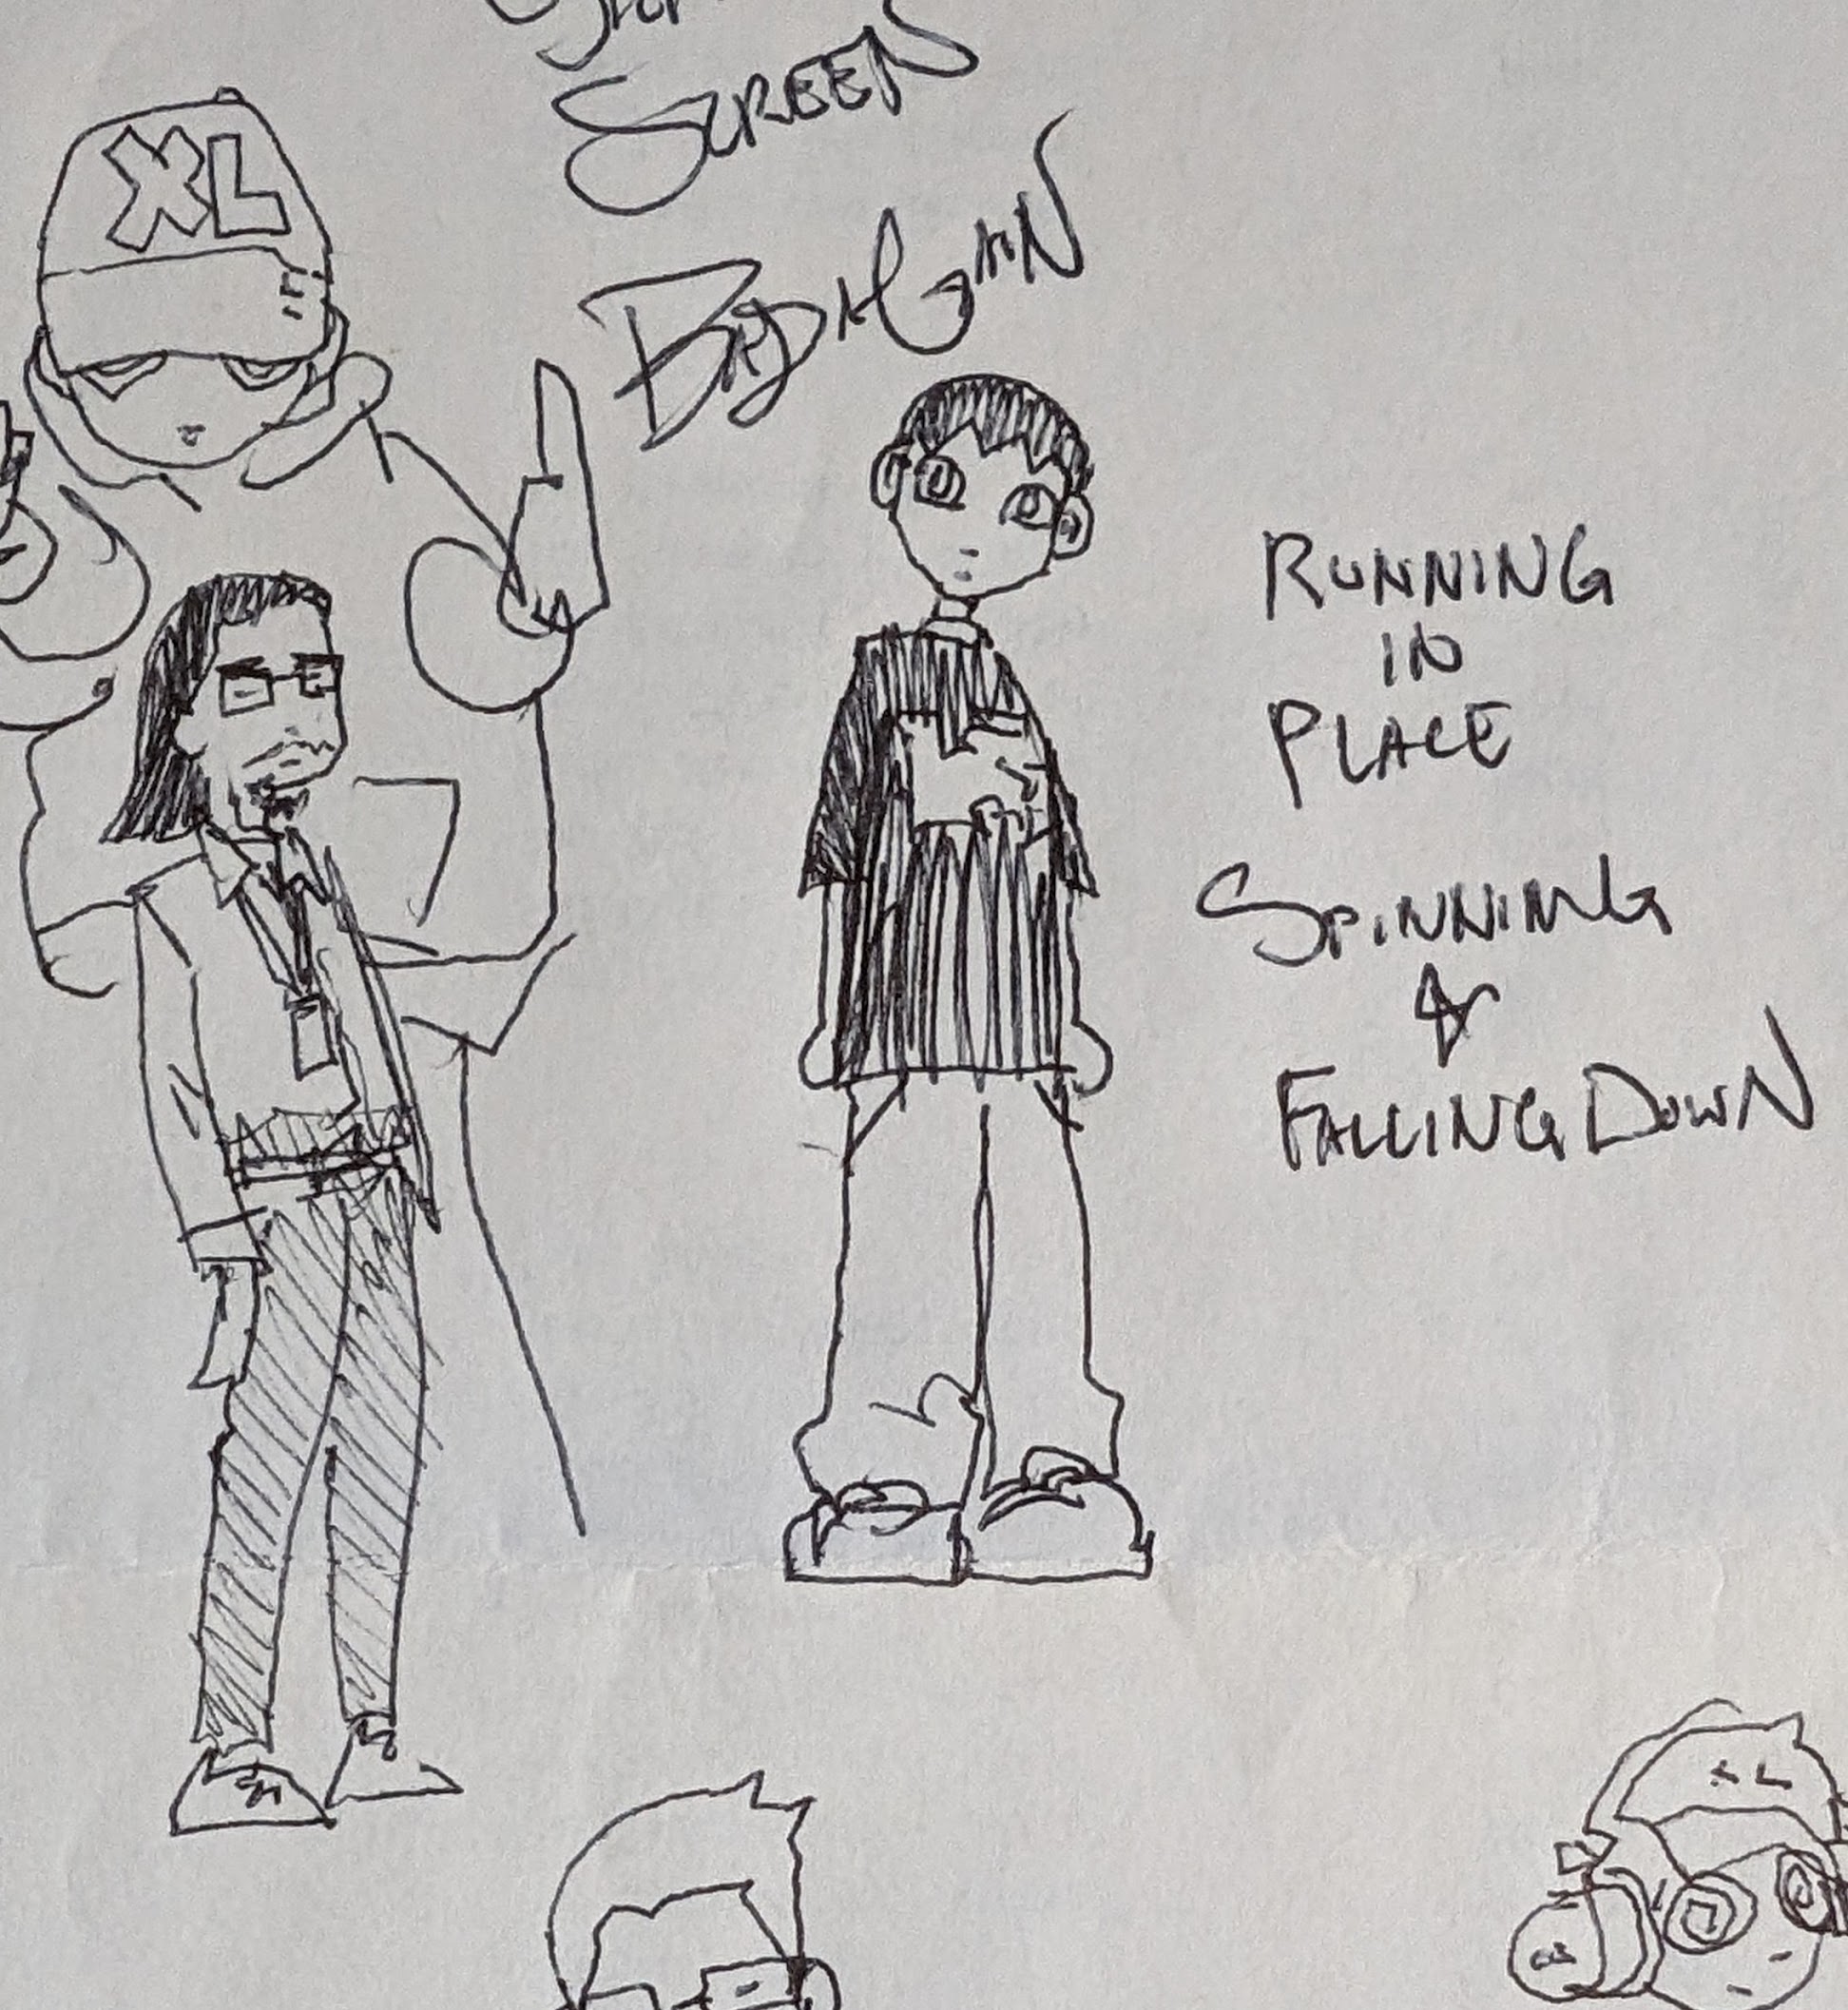 SCREEN
BAD AGAIN
XL
RUNNING
IN
PLACE
SPINNING
&
FALLING DOWN
XL